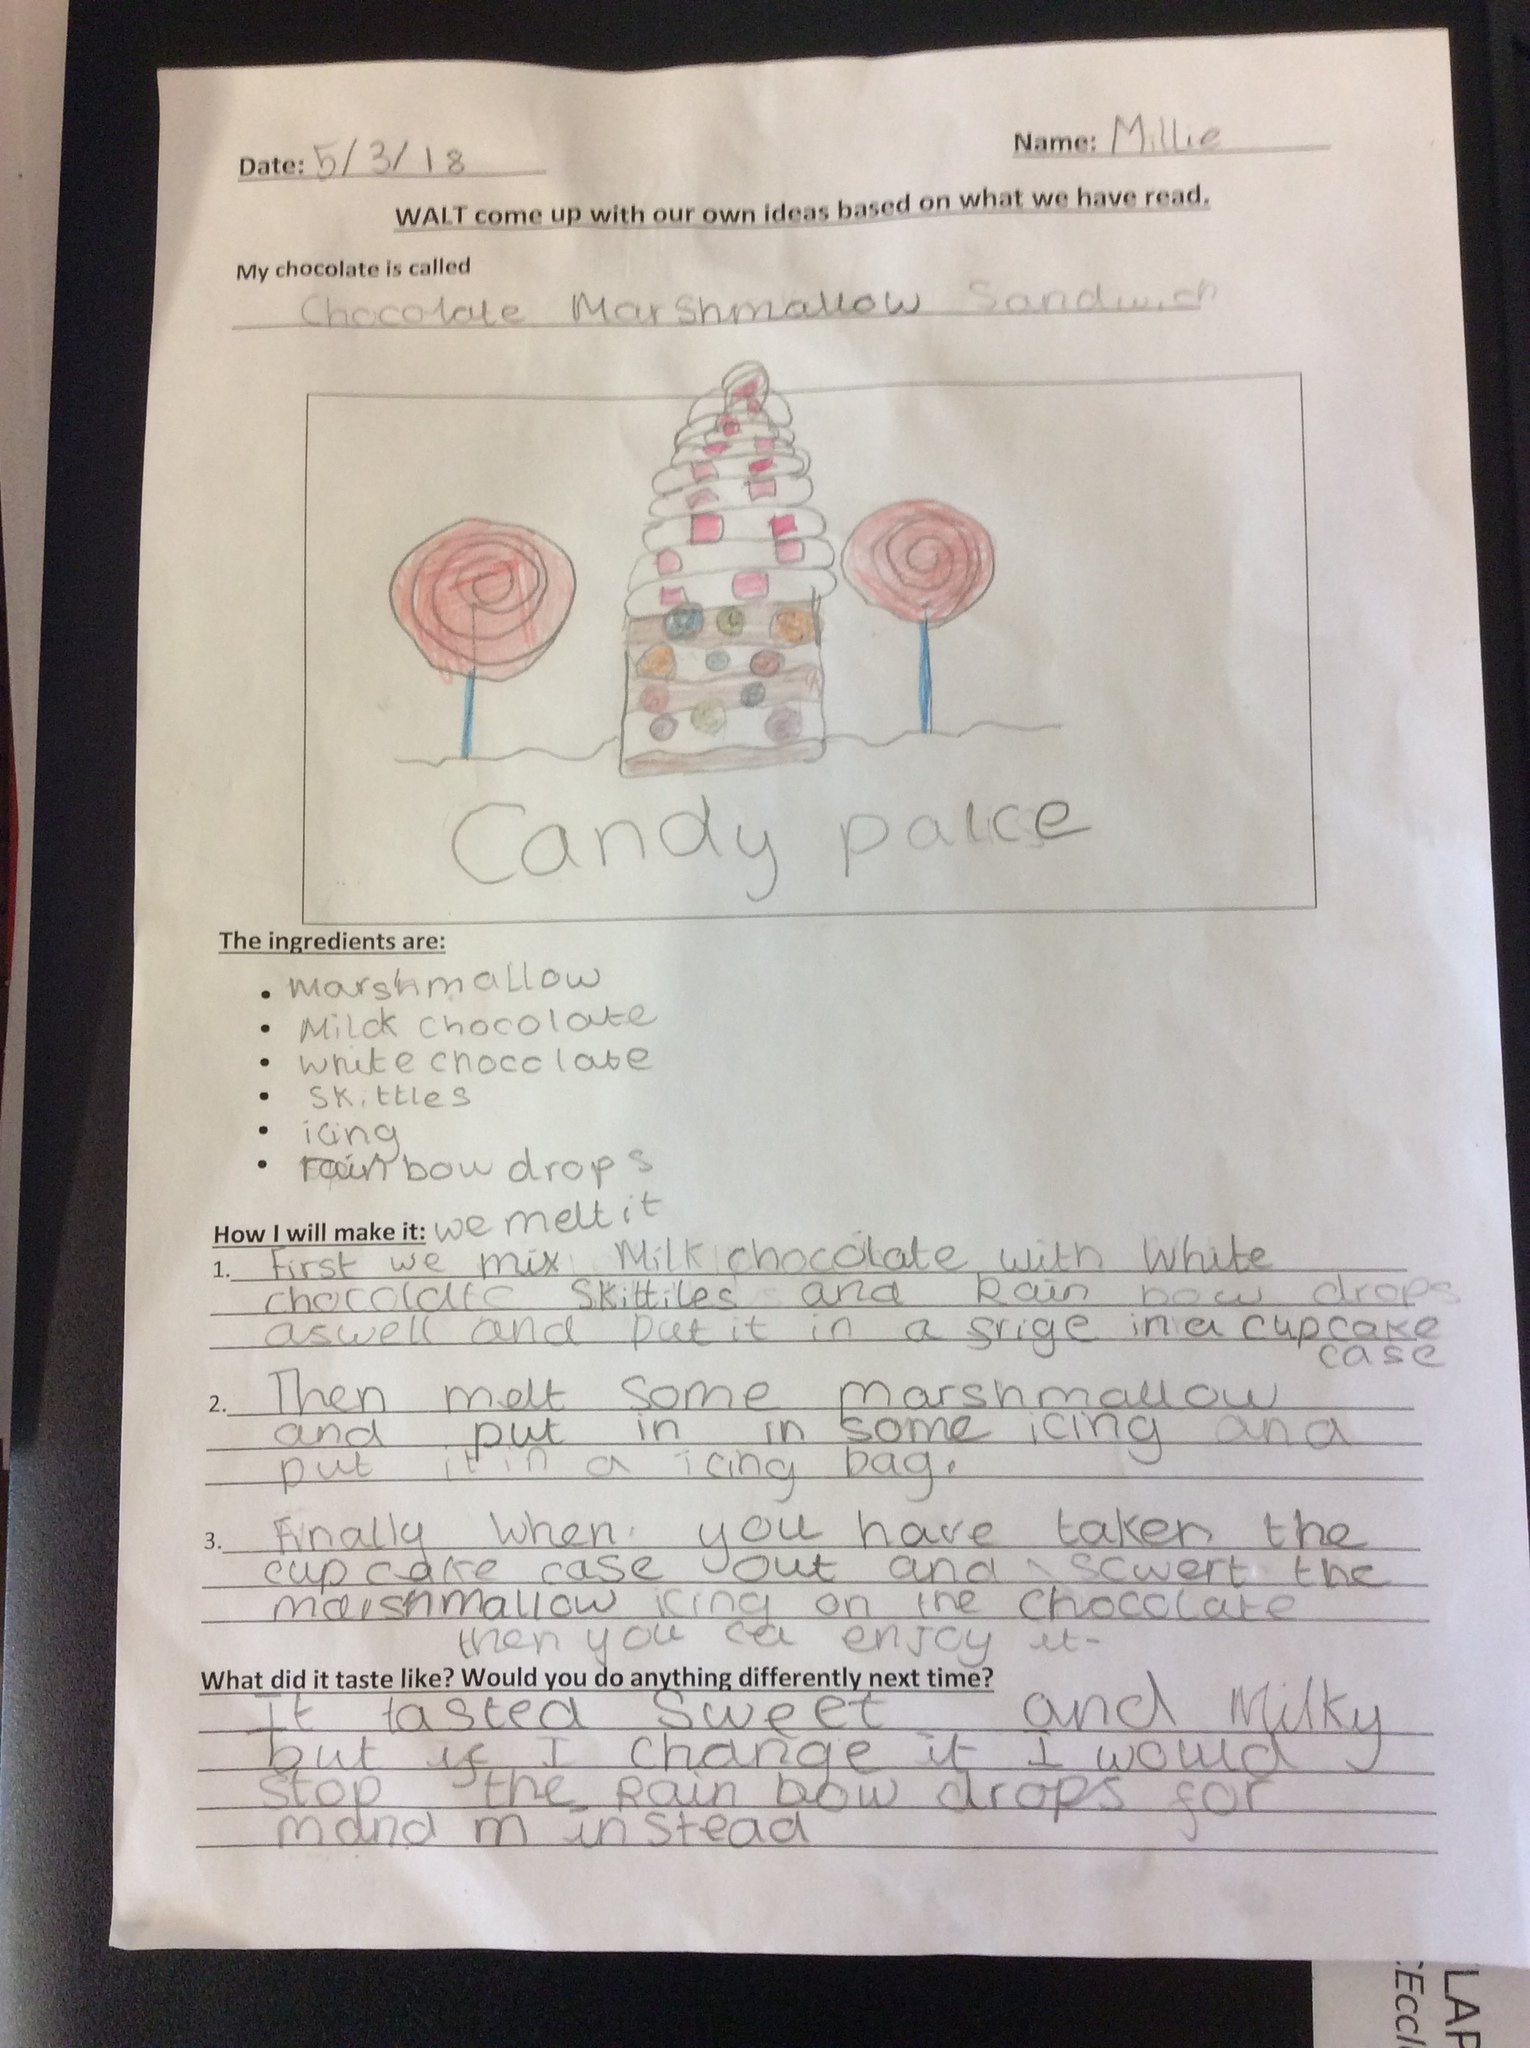 Date: 5/3/18
Name: Millie
WALT come up with our own ideas based on what we have read.
My chocolate is called
Chocolate Marshmallow Sandwich
Candy palce
The ingredients are:
• marshmallow
• Milck chocolate
• white chocolate
• skittles
• icing
• rainbow drops
How I will make it: we melt it
1. First we mix Milk chocolate with White
chocolate Skittiles and Rain bow drops
aswell and put it in a frige in a cupcake
case
2. Then melt some marshmallow
and put in in some icing and
put it in a icing bag.
3. Finally when you have taken the
cupcake case out and scwert the
marshmallow icing on the chocolate
then you ca enjoy it-
What did it taste like? Would you do anything differently next time?
It tasted sweet and Milky
but if I change it I would
stop the Rain bow drops for
mand m instead
LAP
:Eccl